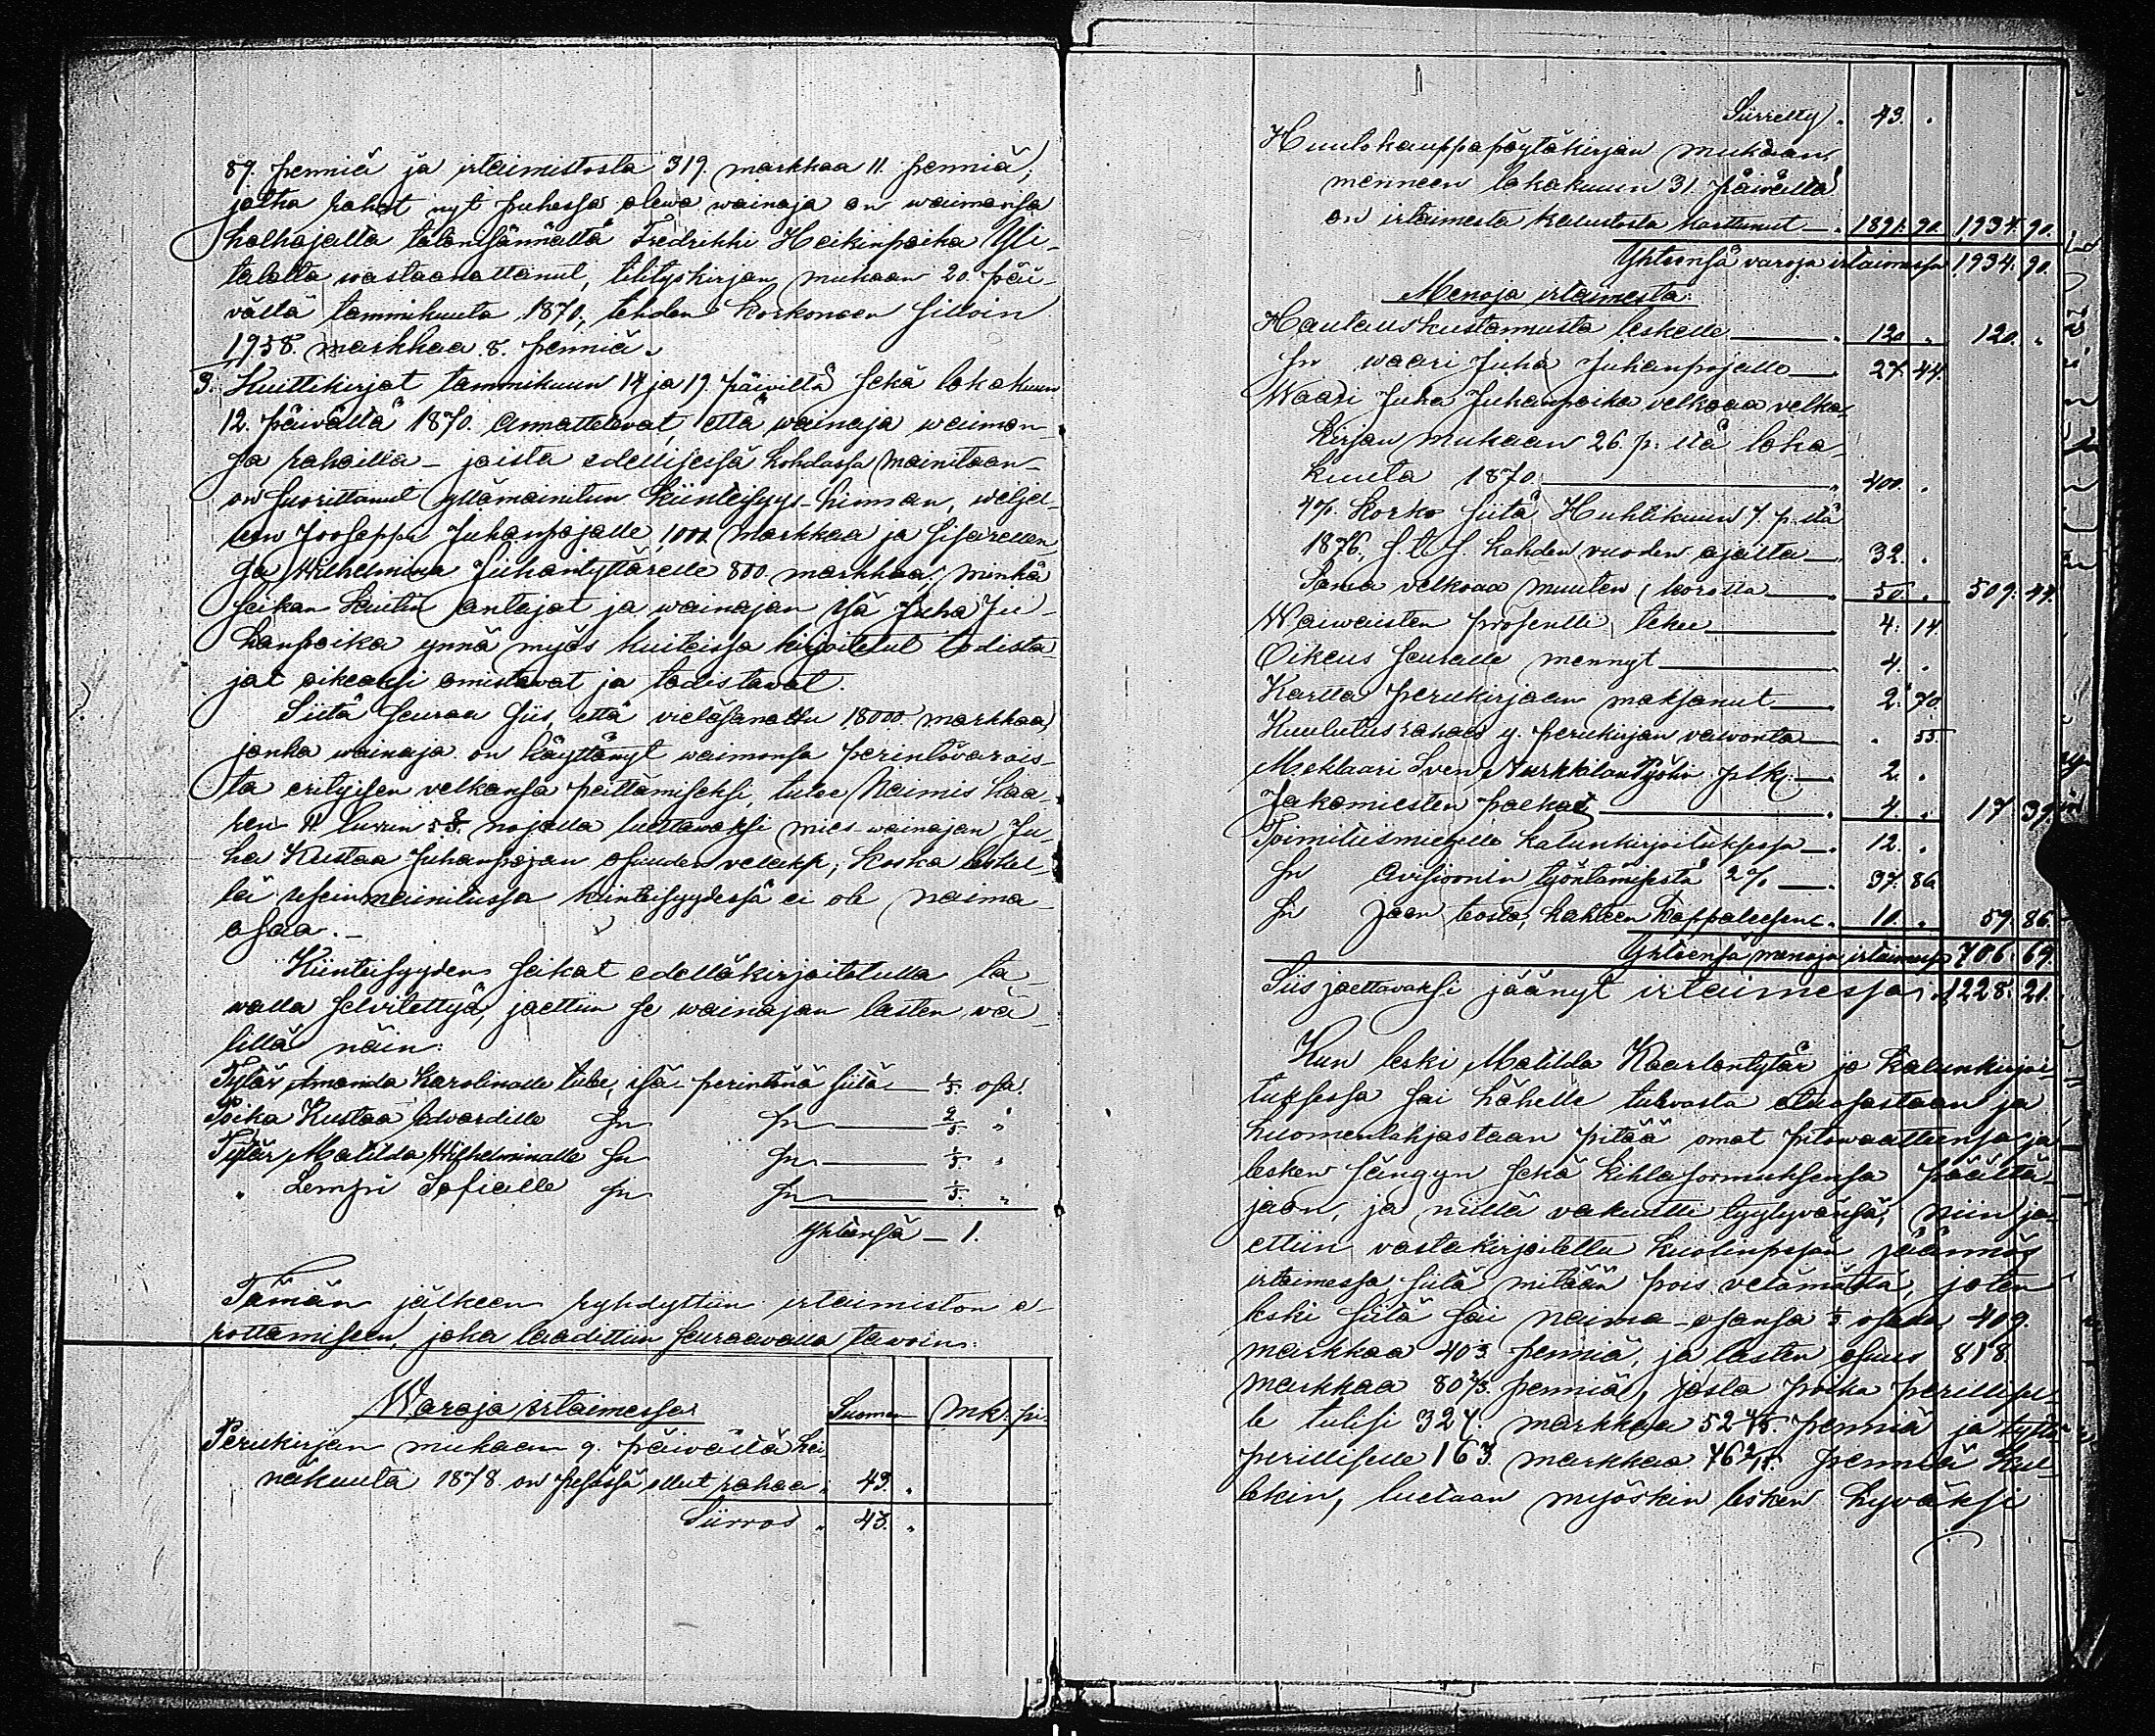 89. penniä ja irtaimistosta 319. markkaa 11. penniä,
jotka rahat nyt puhessa olewa wainaja on waimonsa
holhojalta talonisännältä Fredrikki Heikinpoika Yli-
talolta wastaanottanut, tilityskirjan mukaan 20. päi-
vältä tammikuuta 1870, tehden korkoneen silloin
1958. markkaa 8. penniä.
3. Kuittikirjat tammikuun 14 ja 19. päiviltä sekä lokakuun
12. päivältä 1870. annattelevat, että wainaja waimon-
sa rahoilla – joista edellisessä kohdassa mainitaan –
on suorittanut yllämainitun kiinteisyys-hinnan, weljel-
len Jooseppi Juhanpojalle 1000 markkaa ja sisarellen-
sa Wilhelmiina Juhantyttärelle 800. markkaa. minkä
seikan kuitin antajat ja wainajan isä Juha Ju-
hanpoika ynnä myös kuiteissa kirjoitetut todista-
jat oikeaksi omistavat ja todistavat.
Siitä seuraa siis, että vieläsanottu 1,8000. markkaa,
jonka wainaja on käyttänyt waimonsa perintövarois-
ta erityisen velkansa peittämiseksi, tulee Naimis kaa-
ren 11 luvun 5 §. nojalla luettavaksi mies-wainajan Ju-
ha Kustaa Juhanpojan osuuden velaksi; koska leskel-
lä usein mainitussa kiinteisyydessä ei ole naima-
osaa. –
Kiinteisyyden seikat edelläkirjoitetulla ta-
walla selvitettyä, jaettiin se wainajan lasten vä-
lillä näin:
Tytär Amanda Karolinalle tulee, isä- perintönä siitä — 1/5. osa.
Poika Kustaa Edvardille sn sn — 2/5 "
Tytär Matilda Wilhelminalle sn sn — 1/5. "
" Lempi Sofialle sn sn — 1/5. "
Yhteensä – 1.
Tämän jälkeen ryhdyttiin irtaimiston e-
rottamiseen, joka laadittiin seuraavalla tawoin:
Waroja irtaimessa Suomen Mk. pi.
Perukirjan mukaan 9. päivältä hei-
näkuuta 1878. on pesässä ollut rahaa . 43. "
Siirros " 43. "
Siirretty . 43. .
Huutokauppapöytäkirjan mukaan
menneen lokakuun 31. päivältä
on irtaimesta kalustosta karttunut — . 1891. 90. 1,934. 90.
Yhteensä varoja irtaimessa 1,934. 90.
Menoja irtaimesta.
Hautauskustannusta leskelle — . 120 " 120. "
sn waari Juha Juhanpojalle — . 27. 44.
Waari Juha Juhanpoika velkaa velka-
kirjan mukaan 26. p:ltä loka-
kuuta 1870. — " 400. .
4 %. korko siitä Huhtikuun 7. p:ltä
1876, s. t. s. kahden vuoden ajalta — . 32. .
Sama velkaa muuten, korotta — . 50. . 509. 44.
Waiwaisten prosentti tekee — . 4. 14.
Oikeus seuralle mennyt — . 4. .
Kartta perukirjaan maksanut — . 2. 70
Kuulutusrahaa y. perukirjan valvonta — . . 55.
Meklaari Sven Nurkkilan työhin p.l.k. — . 2. .
Jakomiesten palkat — . 4. . 17 39.
Toimitusmiehelle kalunkirjoituksessa — . 12. .
sn avisioonin työntämisestä 2 % — . 37. 86.
sn jaon teosta, kahteen kappaleesen — . 10. . 59. 86.
Yhteensä menoja irtaimessa 706. 69.
Siis jaettavaksi jäänyt irtaimessa . 1228. 21.
Kun leski Matilda Kaarlontytär jo kalunkirjoi-
tuksessa sai hähelle tulevasta etuosastaan ja
huomenlahjastaan pitää omat pitowaatteensa ja
lesken sängyn sekä kihlasormuksensa päältä-
jaon, ja niillä vakuutti tyytyvänsä, niin ja-
ettiin vastakirjoitettu kuolinpesän jäännös
irtaimessa siitä mitään pois vetämättä, joten
leski siitä sai naima-osansa 1/3 osada, 409.
markkaa 40 1/3. penniä, ja lasten osuus 818.
markkaa 80 2/3. penniä, josta poika perillisel-
le tulisi 327. markkaa 52 4/15. penniä ja tytär
perilliselle 163. markkaa 76 2/15. penniä Kui-
tekin, luetaan myöskin lesken hyväksi